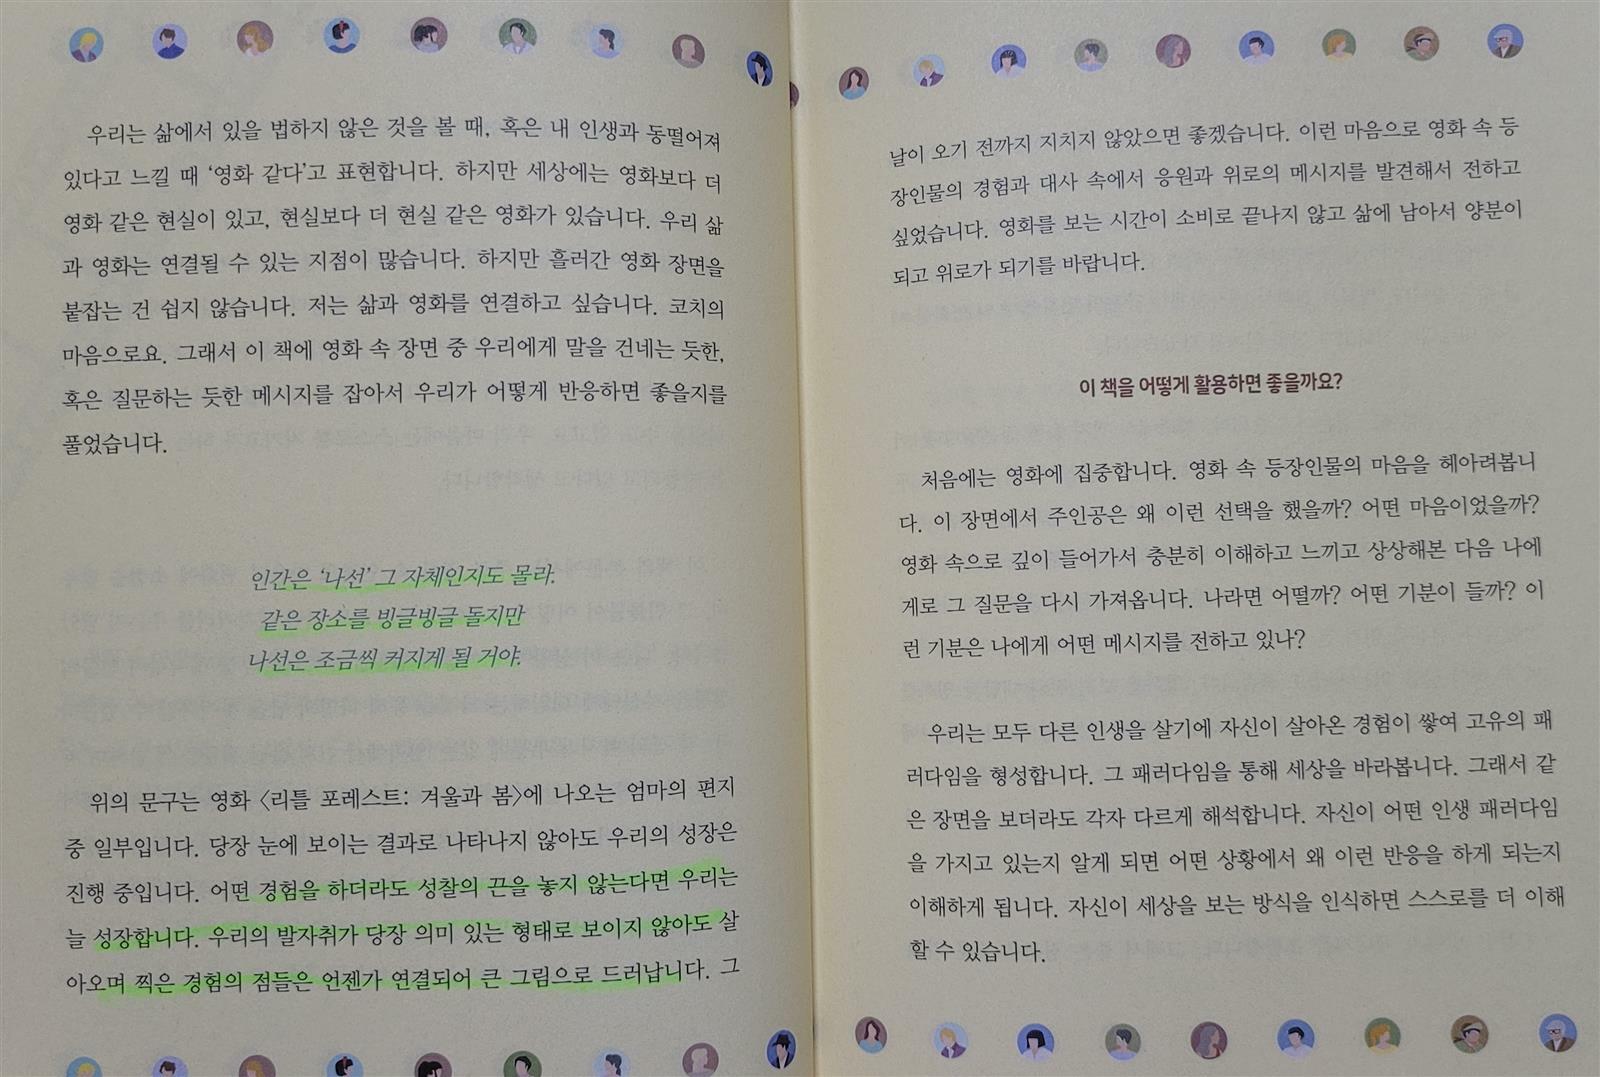 우리는 삶에서 있을 법하지 않은 것을 볼 때, 혹은 내 인생과 동떨어져
있다고 느낄 때 ‘영화 같다’고 표현합니다. 하지만 세상에는 영화보다 더
영화 같은 현실이 있고, 현실보다 더 현실 같은 영화가 있습니다. 우리 삶
과 영화는 연결될 수 있는 지점이 많습니다. 하지만 흘러간 영화 장면을
붙잡는 건 쉽지 않습니다. 저는 삶과 영화를 연결하고 싶습니다. 코치의
마음으로요. 그래서 이 책에 영화 속 장면 중 우리에게 말을 건네는 듯한,
혹은 질문하는 듯한 메시지를 잡아서 우리가 어떻게 반응하면 좋을지를
풀었습니다.
인간은 ‘나선’ 그 자체인지도 몰라.
같은 장소를 빙글빙글 돌지만
나선은 조금씩 커지게 될 거야.
위의 문구는 영화 〈리틀 포레스트: 겨울과 봄〉에 나오는 엄마의 편지
중 일부입니다. 당장 눈에 보이는 결과로 나타나지 않아도 우리의 성장은
진행 중입니다. 어떤 경험을 하더라도 성찰의 끈을 놓지 않는다면 우리는
늘 성장합니다. 우리의 발자취가 당장 의미 있는 형태로 보이지 않아도 살
아오며 찍은 경험의 점들은 언젠가 연결되어 큰 그림으로 드러납니다. 그
날이 오기 전까지 지치지 않았으면 좋겠습니다. 이런 마음으로 영화 속 등
장인물의 경험과 대사 속에서 응원과 위로의 메시지를 발견해서 전하고
싶었습니다. 영화를 보는 시간이 소비로 끝나지 않고 삶에 남아서 양분이
되고 위로가 되기를 바랍니다.
이 책을 어떻게 활용하면 좋을까요?
처음에는 영화에 집중합니다. 영화 속 등장인물의 마음을 헤아려봅니
다. 이 장면에서 주인공은 왜 이런 선택을 했을까? 어떤 마음이었을까?
영화 속으로 깊이 들어가서 충분히 이해하고 느끼고 상상해본 다음 나에
게로 그 질문을 다시 가져옵니다. 나라면 어떨까? 어떤 기분이 들까? 이
런 기분은 나에게 어떤 메시지를 전하고 있나?
우리는 모두 다른 인생을 살기에 자신이 살아온 경험이 쌓여 고유의 패
러다임을 형성합니다. 그 패러다임을 통해 세상을 바라봅니다. 그래서 같
은 장면을 보더라도 각자 다르게 해석합니다. 자신이 어떤 인생 패러다임
을 가지고 있는지 알게 되면 어떤 상황에서 왜 이런 반응을 하게 되는지
이해하게 됩니다. 자신이 세상을 보는 방식을 인식하면 스스로를 더 이해
할 수 있습니다.